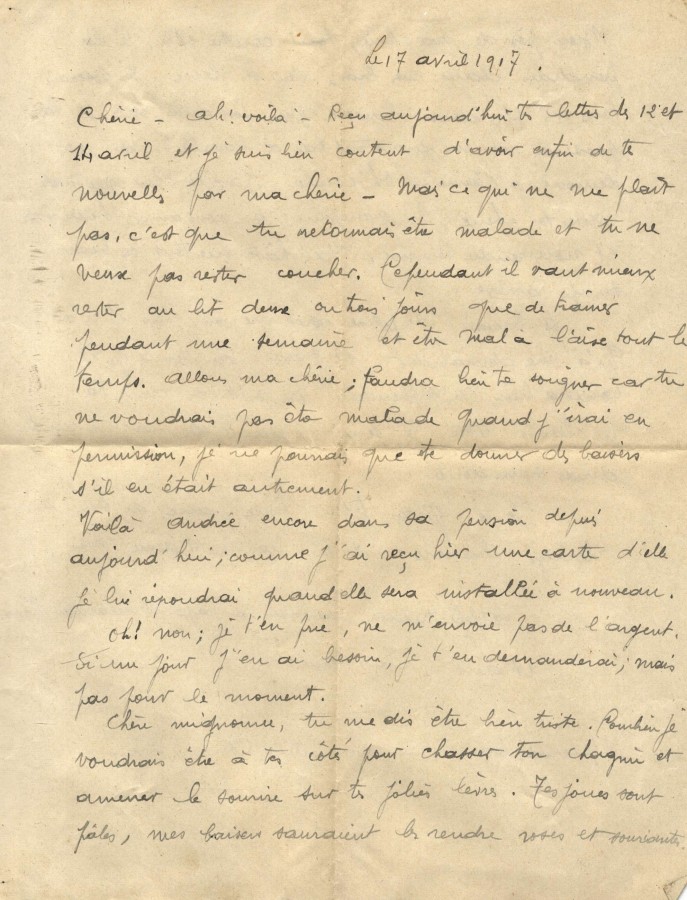 Le 17 avril 1917.
Chérie – ah! voilà – Reçu aujourd'hui tes lettres des 12 et
14 avril et je suis bien content d'avoir enfin de te
nouvelles par ma chérie – Mais ce qui ne me plaît
pas, c'est que tu reconnais être malade et tu ne
veux pas rester coucher. Cependant il vaut mieux
rester au lit deux ou trois jours que de traîner
pendant une semaine et être mal à l'aise tout le
temps. Allons ma chérie; faudra bien te soigner car tu
ne voudrais pas être malade quand j'irai en
permission, je ne pourrais que te donner des baisers
s'il en était autrement.
Voilà Andrée encore dans sa pension depuis
aujourd'hui; comme j'ai reçu hier une carte d'elle
je lui répondrai quand elle sera installée à nouveau.
Oh! non; je t'en prie, ne m'envoie pas de l'argent.
Si un jour j'en ai besoin, je t'en demanderai; mais
pas pour le moment.
Chère mignonne, tu me dis être bien triste. Combien je
voudrais être à tes côtés pour chasser ton chagrin et
amener le sourire sur tes jolies lèvres. Tes joues sont
pâles, mes baisers sauraient les rendre roses et souriantes.